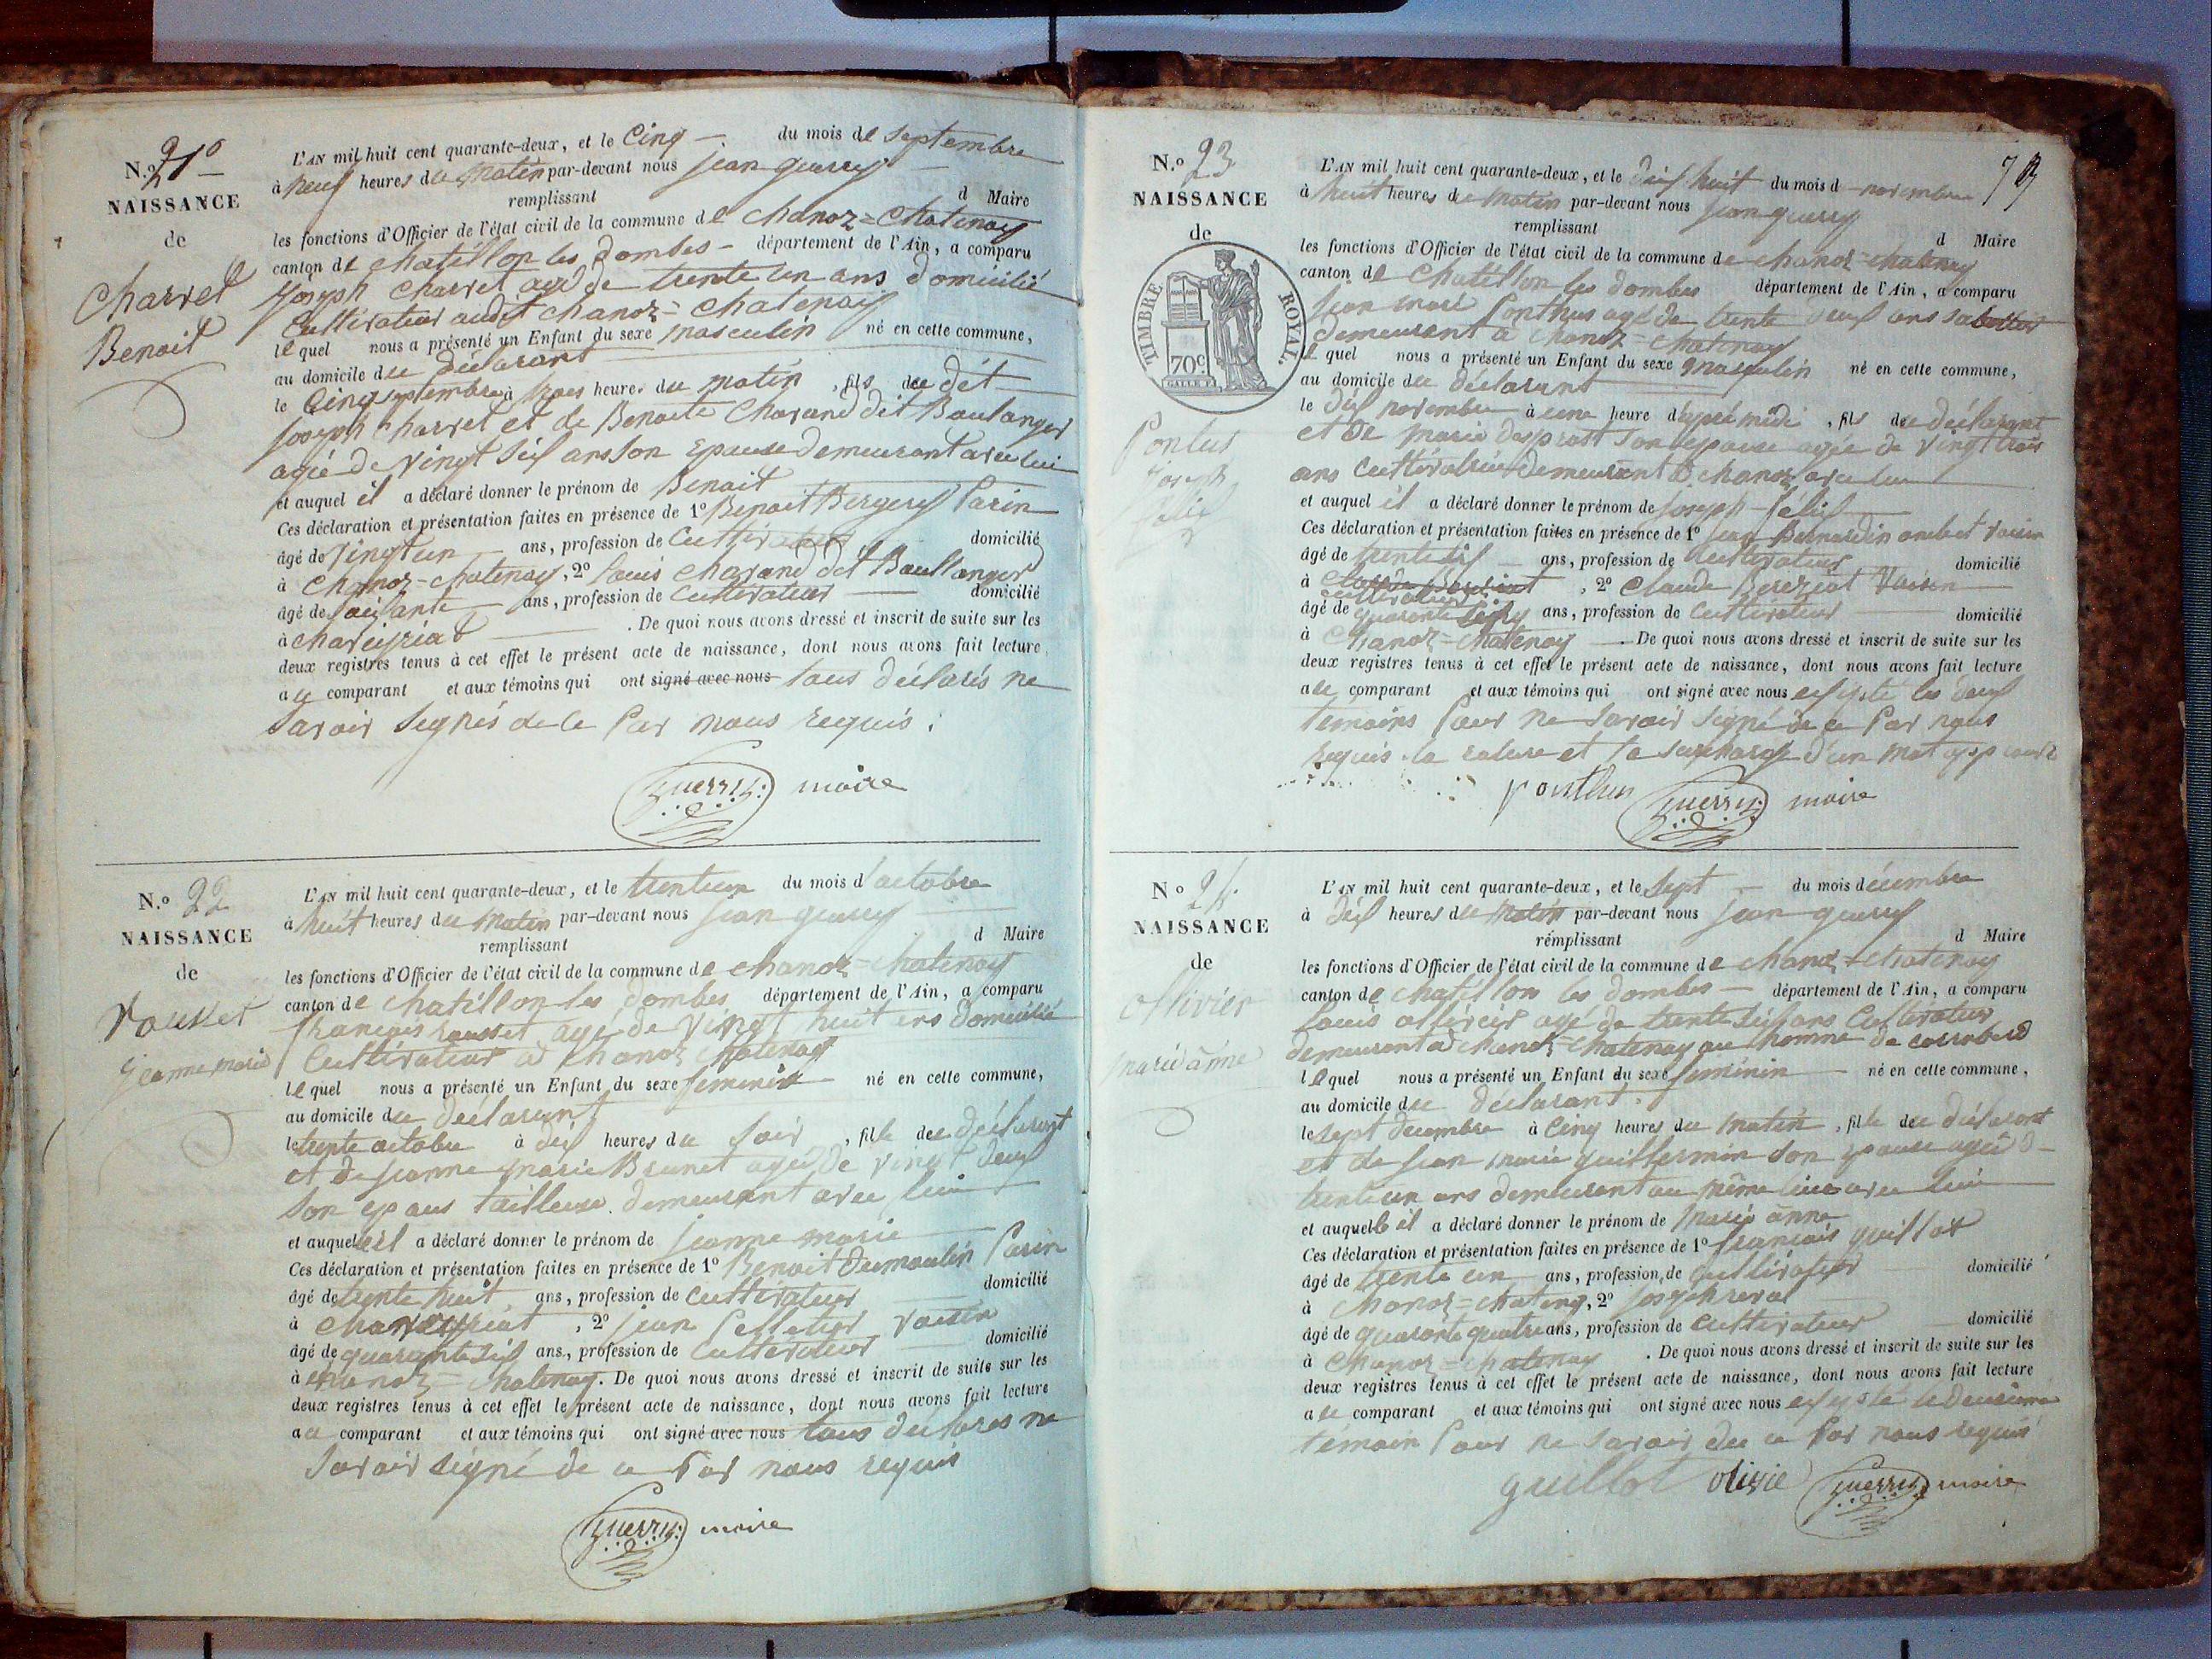 N.o 21o
NAISSANCE
de
Charvet
Benoit
L'AN mil huit cent quarante-deux, et le Cinq du mois de Septembre
à neuf heures du matin par-devant nous jean guerry
remplissant d Maire
les fonctions d'Officier de l'état civil de la commune de chanoz=chatenay
canton de chatillon les dombes département de l'Ain, a comparu
joseph Charvet agé de trente un ans domicilié
Cultivateur audit chanoz=chatenay
lequel nous a présenté un Enfant du sexe masculin né en cette commune,
au domicile du déclarant
le Cinq septembre à heures du matin, fils du dit
joseph Charvet et de Benoite Charand dit Boulanger
agée de vingt six ans son epouse demeurant avec lui
et auquel il a déclaré donner le prénom de Benoit
Ces déclaration et présentation faites en présence de 1o Benoit Bergery Parin
âgé de vingt un ans, profession de Cultivateur domicilié
à chanoz=chatenay, 2o louis charand dit Boullanger
âgé de soixante ans, profession de cultivateur domicilié
à chaveyriat . De quoi nous avons dressé et inscrit de suite sur les
deux registres tenus à cet effet le présent acte de naissance, dont nous avons fait lecture
au comparant et aux témoins qui ont signé avec nous tous déclarés ne
savoir signés de ce Par nous requis.
Guerry maire
N.o 22
NAISSANCE
de
rousset
jeanne marie
L'AN mil huit cent quarante-deux, et le trente un du mois d'octobre
à huit heures du matin par-devant nous jean guerry
remplissant d Maire
les fonctions d'Officier de l'état civil de la commune de chanoz=chatenay
canton de chatillon les dombes département de l'Ain, a comparu
françois rousset agé de vingt huit ans domicilié
Cultivateur à chanoz chatenay
lequel nous a présenté un Enfant du sexe feminin né en cette commune,
au domicile du déclarant
le trente octobre à dix heures du soir, fille du déclarant
et de jeanne marie Brunet agée de vingt deux
son epous tailleuse demeurant avec lui
et auquelle il a déclaré donner le prénom de jeanne marie
Ces déclaration et présentation faites en présence de 1o Benoit dumoulin Parin
âgé de trente huit ans, profession de cultivateur domicilié
à chaveyriat, 2o jean Pelletier voisin
âgé de quarante six ans, profession de Cultivateur domicilié
à chanoz=chatenay. De quoi nous avons dressé et inscrit de suite sur les
deux registres tenus à cet effet le présent acte de naissance, dont nous avons fait lecture
au comparant et aux témoins qui ont signé avec nous tous déclarés ne
savoir signé de ce Par nous requis
Guerry maire
N.o 23
NAISSANCE
de
TIMBRE ROYAL.
70c
Pontus
joseph
félix
L'AN mil huit cent quarante-deux, et le dix huit du mois d novembre
à huit heures du matin par-devant nous jean guerry
remplissant d Maire
les fonctions d'Officier de l'état civil de la commune de chanoz=chatenay
canton de chatillon les dombes département de l'Ain, a comparu
jean marie Ponthus agé de trente deux ans sabottier
demeurant à chanoz=chatenay
lequel nous a présenté un Enfant du sexe masculin né en cette commune,
au domicile du déclarant
le dix novembre à une heure d'après midi, fils du déclarant
et de marie desprost son epouse agée de vingt trois
ans Cultivatrice demeurant à chanoz avec lui
et auquel il a déclaré donner le prénom de joseph félix
Ces déclaration et présentation faites en présence de 1o jean Bernardin voisin
âgé de trente six ans, profession de cultivateur domicilié
à , 2o Claude Berezeat voisin
âgé de quarante ans, profession de cultivateur domicilié
à chanoz=chatenay . De quoi nous avons dressé et inscrit de suite sur les
deux registres tenus à cet effet le présent acte de naissance, dont nous avons fait lecture
au comparant et aux témoins qui ont signé avec nous les deux
temoins Pour ne savoir signé de ce Par nous
requis la rature et la surcharge d'un mot
Ponthus Guerry maire
N.o 24.
NAISSANCE
de
ollivier
marie anne
L'AN mil huit cent quarante-deux, et le sept du mois décembre
à dix heures du matin par-devant nous jean guerry
remplissant d Maire
les fonctions d'Officier de l'état civil de la commune de chanoz=chatenay
canton de chatillon les dombes département de l'Ain, a comparu
louis ollivier agé de trente six ans Cultivateur
demeurant à chanoz=chatenay au
lequel nous a présenté un Enfant du sexe feminin né en cette commune,
au domicile du declarant.
le sept decembre à Cinq heures du matin, fille du déclarant
et de jean marie guillermin son epouse agée d
trente un ans demeurant au même lieu avec lui
et auquelle il a déclaré donner le prénom de Marie anne
Ces déclaration et présentation faites en présence de 1o françois guillot
âgé de trente un ans, profession de cultivateur domicilié
à chanoz=chatenay, 2o joseph reval
âgé de quarante quatre ans, profession de cultivateur domicilié
à chanoz=chatenay . De quoi nous avons dressé et inscrit de suite sur les
deux registres tenus à cet effet le présent acte de naissance, dont nous avons fait lecture
au comparant et aux témoins qui ont signé avec nous le deuxième
témoin Pour ne savoir de ce Par nous requis
guillot olivié Guerry maire